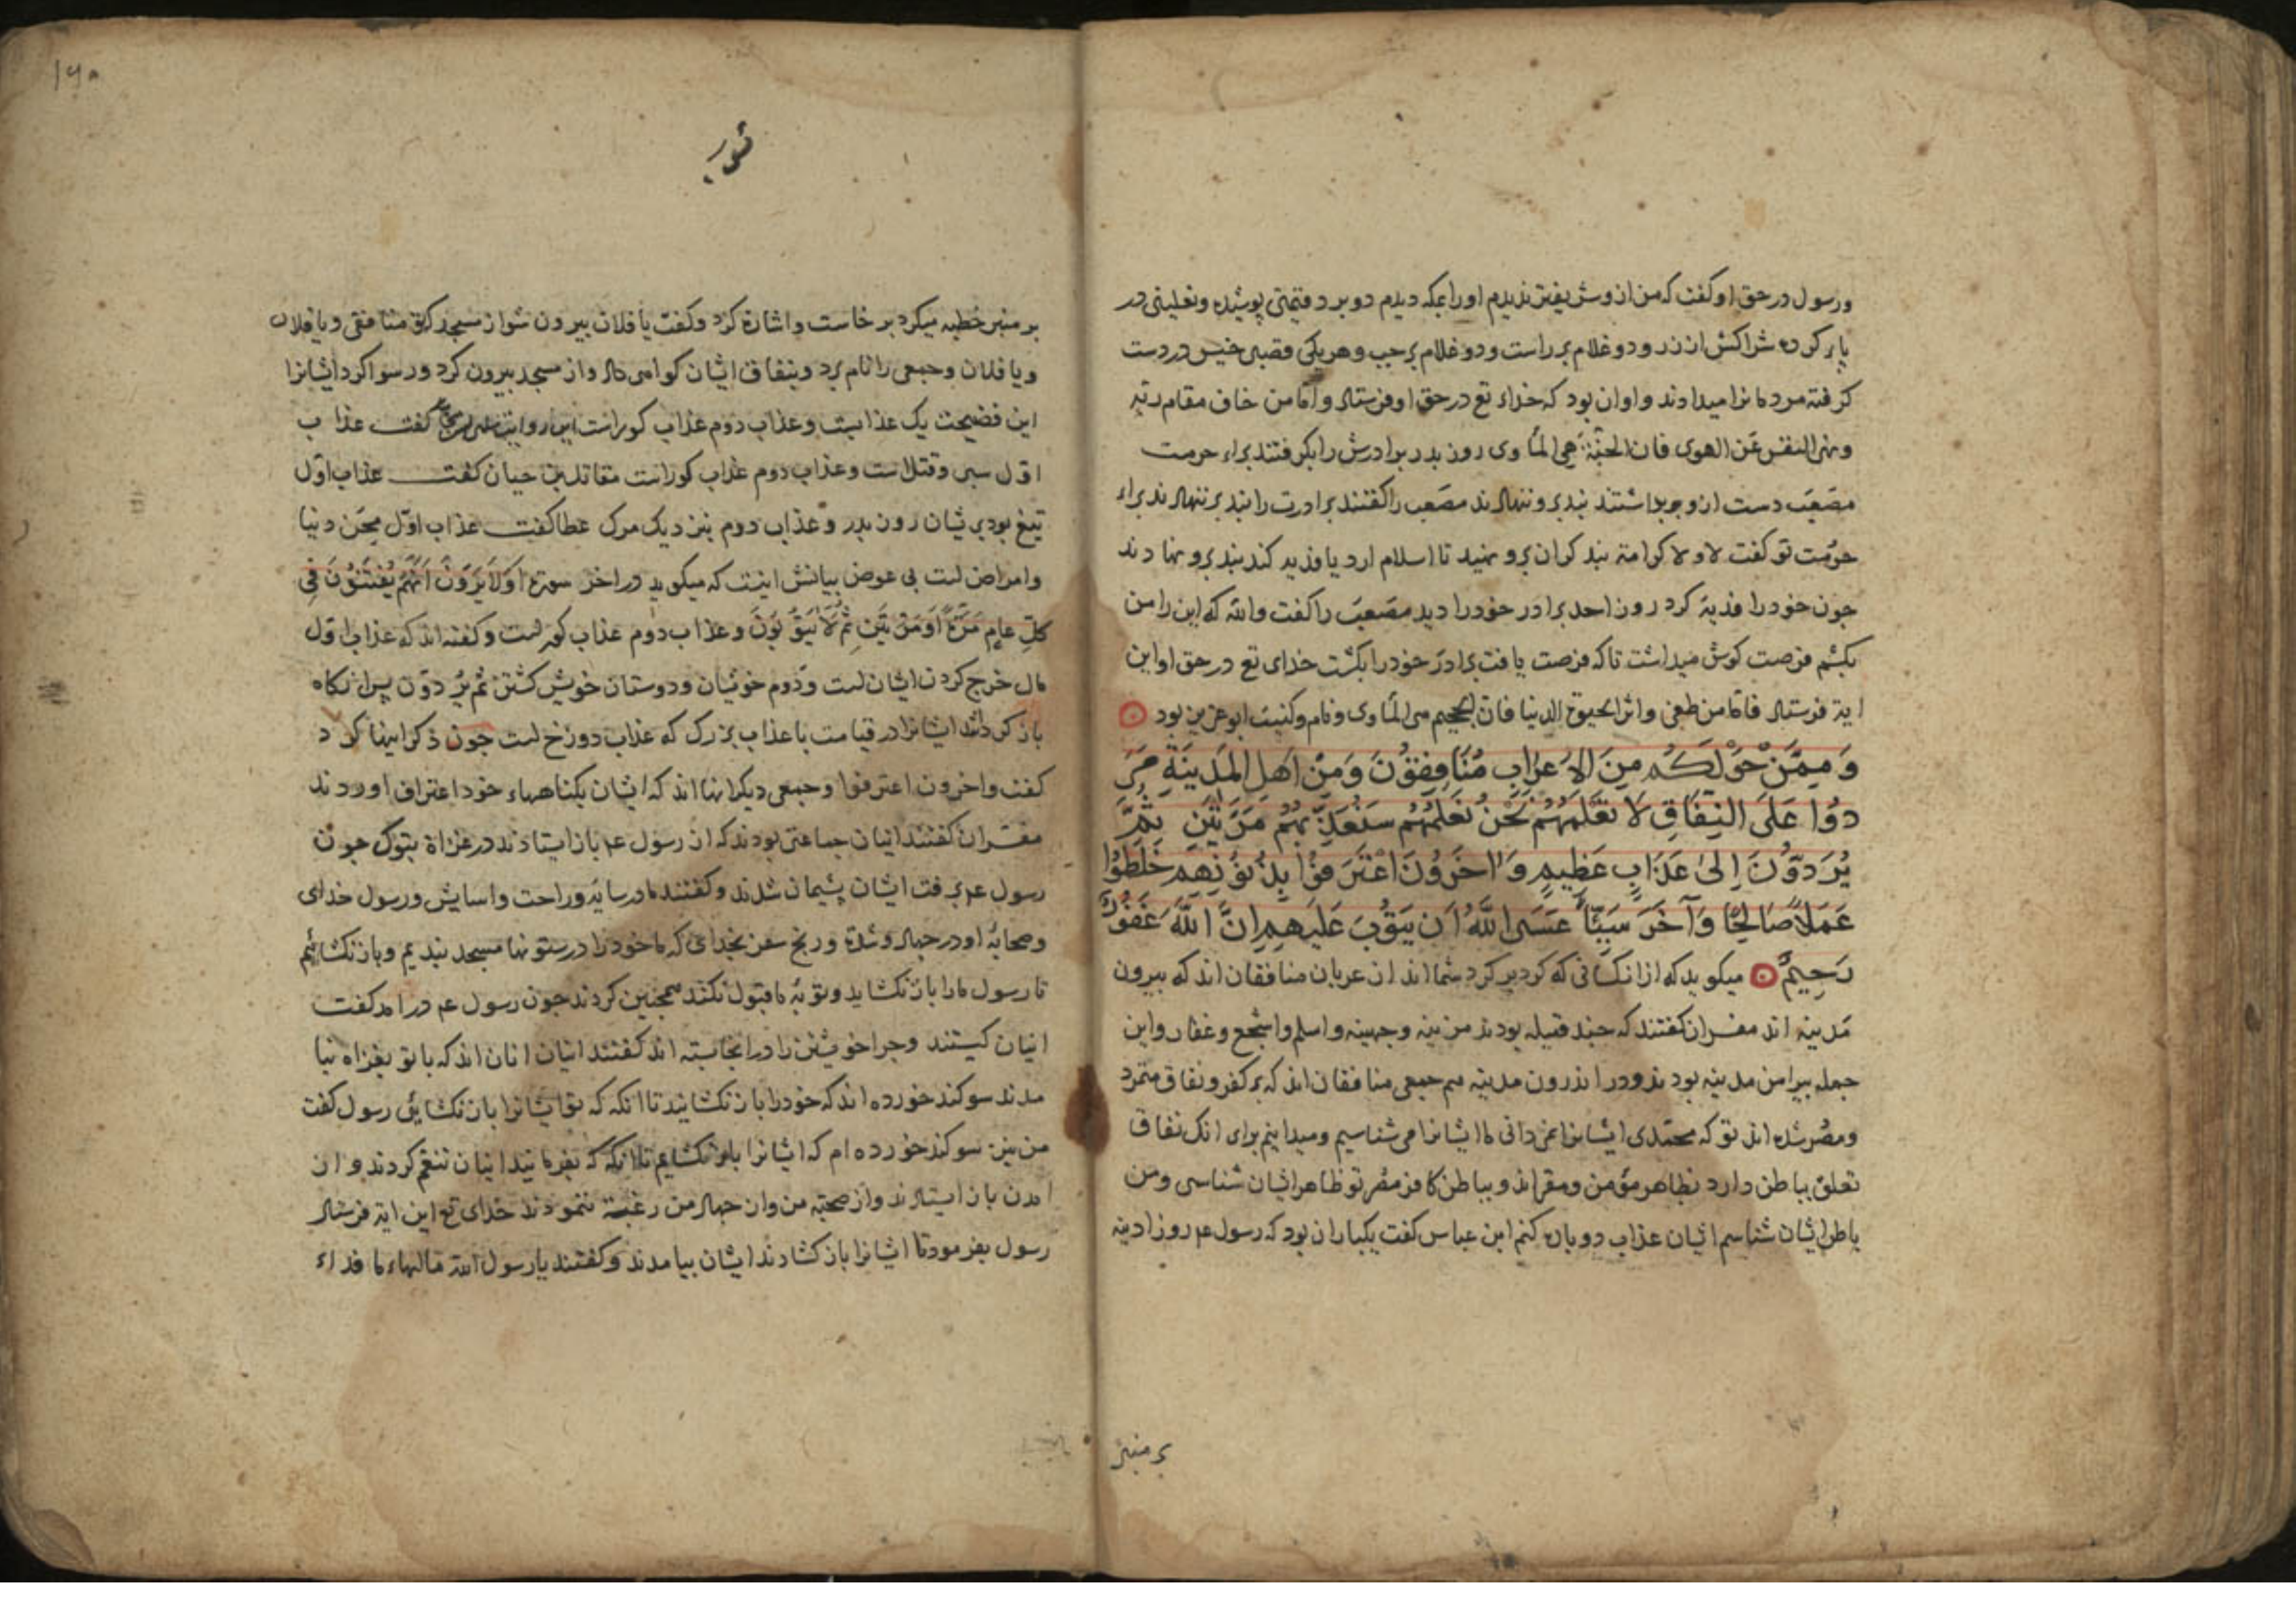 ورسول در حق او کفت که من از وش یفتن ندیدم اورا بمکه دیدم دو برد قیمتی پوشیده ونعلینی در
پای کرده شراکش از زر ودو غلام بر راست ودو غلام بر جب وهر یکی قصبی خیس در دست
کرفته مردمانرا میدادند واو ان بود که خداء تع در حق او فرستاد واما من خاف مقام ربه
ونهی النفس عن الهوی فان الجنة هی الماوی روز بدر برادرش را بکرفتند براء حرمت
مصعب دست ازو بر داشتند بند برو ننهادند مصعب را کفتند برادرت را بند بر ننهادند براء
حرمت تو کفت لا ولا کرامة بند کران برو نهید تا اسلام ارد یا فدیه کند بند برو نهادند
جون خود را فدیه کرد روز احد برادر خود را دید مصعب را کفت والله که این را من
بکشم فرصت کوش میداشت تا که فرصت یافت برادر خود را بکشت خدای تع در حق او این
ایة فرستاد فاما من طغی واثر الحیوة الدنیا فان الجحیم هی الماوی ونام وکنیت ابو عزیز بود
وَمِمَّنْ حَوْلَكُم مِنَ الاَعْرَابِ مُنَافِقُونَ وَمِنْ اَهْلِ المَدِينَةِ مَرَ
دُوا عَلَى النِّفَاقِ لَا تَعْلَمُهُمْ نَحْنُ نَعْلَمُهُمْ سَنُعَذِّبُهُمْ مَرَّتَيْنِ ثُمَّ
يُرَدُّونَ اِلىٰ عَذَابٍ عَظِيمٍ وَاٰخَرُونَ اعْتَرَفُوا بِذُنُوبِهِمْ خَلَطُوا
عَمَلًا صَالِحًا وَآخَرَ سَيِّئًا عَسَى اللَّهُ اَن يَتُوبَ عَلَيهِم اِنَّ اللَّهَ غَفُورٌ
رَحِيمٌ میکوید که از انکسانی که کردبر کرد شما اند از عربان منافقان اند که بیرون
مدینه اند مفسران کفتند که جند قبیله بودند مزینه وجهینه واسلم واشجع وغفار واین
جمله بیرامن مدینه بودند ودر اندرون مدینه هم جمعی منافقان اند که بر کفر ونفاق متمرد
ومصر شده اند تو که محمدی ایشانرا نمی دانی ما ایشانرا می شناسیم ومیدانیم برای انک نفاق
تعلق بباطن دارد بظاهر مؤمن ومقر اند وبباطن کافر مقر تو ظاهر ایشان شناسی ومن
باطن ایشان شناسم ایشان عذاب دوباره کنم ابن عباس کفت یکبار ان بود که رسول عم روز ادینه
بر منبر
۱۹۰
بر منبر خطبه میکرد بر خاست واشارة کرد وکفت یا فلان بیرون شو از مسجد که تو منافقی ویا فلان
ویا فلان وجمعی را نام برد وبنفاق ایشان کواهی داد واز مسجد بیرون کرد ورسوا کرد ایشانرا
این فضیحت یک عذابست وعذاب دوم عذاب کورست کفت عذاب
اول سبی وقتلست وعذاب دوم عذاب کورست مقاتل بن حیان کفت عذاب اول
تیغ بود بریشان روز بدر وعذاب دوم بنزدیک مرک عطا کفت عذاب اول محن دنیا
وامراض است بی عوض بیانش اینست که میکوید در اخر سورة اَوَلَا يَرَوْنَ اَنَّهُمْ يُفْتَنُونَ فِى
كلِّ عامٍ مَرَّةً اَوْ مَرَّتَيْنِ ثُمَّ لَا يَتُوبُونَ وعذاب دوم عذاب کورست وکفته اند که عذاب اول
مال خرج کردن ایشان است ودوم خویشان ودوستان خویش کشتن ثم یردون پس انکاه
باز کردانند ایشانرا در قیامت با عذاب بزرک که عذاب دوزخ است جون ذکر اینها کرد
کفت واخرون اعترفوا وجمعی دیکر انها اند که ایشان بکناههاء خود اعتراف اوردند
مفسران کفتند اینان جماعتی بودند که از رسول عم باز ایستادند در غزاة تبوک جون
رسول عم برفت ایشان پشیمان شدند وکفتند ما در سایه وراحت واسایش ورسول خدای
وصحابه او در جهاد وشدة ورنج سفر بخدای که ما خود را در ستونها مسجد بندیم وباز نکشائیم
تا رسول مارا باز نکشاید وتوبه ما قبول نکند همجنین کردند جون رسول عم در امد کفت
اینان کیستند وجرا خویشتن را در اینجا بسته اند کفتند اینان انان اند که با تو بغزاه نیا
مدند سوکند خورده اند که خود را باز نکشایند تا انکه که تو ایشانرا باز نکشایی رسول کفت
من نیز سوکند خورده ام که ایشانرا باز نکشایم تا انکه که بفرمایند اینان تنعم کردند واز
امدن باز ایستادند واز صحبة من واز جهاد من رغبة ننمودند خدای تع این ایة فرستاد
رسول بفرمود تا ایشانرا باز کشادند ایشان بیامدند وکفتند یا رسول الله مالهاء ما فداء